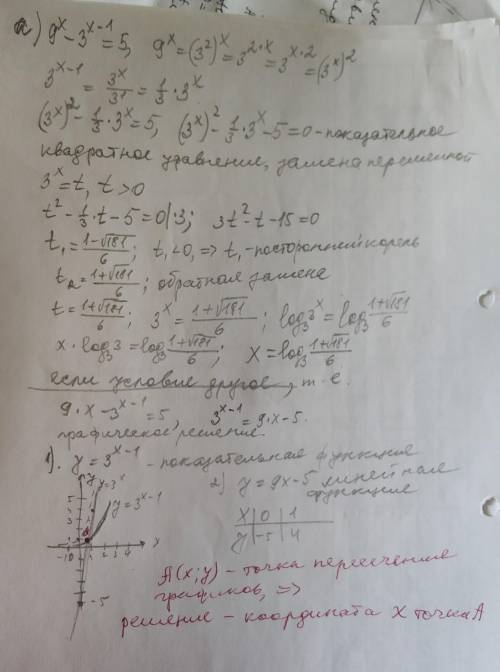 а) 9^x - 3^{x-1} = 5, 9^x = (3^2)^x = 3^{2·x} = 3^{x·2} = (3^x)^2
3^{x-1} = 3^x/3^1 = 1/3 · 3^x
(3^x)^2 - 1/3 · 3^x = 5, (3^x)^2 - 1/3 · 3^x - 5 = 0 - показательное
квадратное уравнение, замена переменной
3^x = t, t > 0
t^2 - 1/3 · t - 5 = 0 | ·3; 3t^2 - t - 15 = 0
t_1 = (1-√181)/6; t_1 < 0, => t_1 - посторонний корень
t_2 = (1+√181)/6; обратная замена
t = (1+√181)/6; 3^x = (1+√181)/6; log_3 3^x = log_3 (1+√181)/6
x · log_3 3 = log_3 (1+√181)/6; x = log_3 (1+√181)/6
если условие другое, т.е.
9·x - 3^{x-1} = 5 3^{x-1} = 9·x - 5.
графическое решение.
1). y = 3^{x-1} - показательная функция
2) y = 9x - 5 линейная
функция
y y=3^x
y = 3^{x-1}
x | 0 | 1
y | -5 | 4
5
-1 0 1 2 3 4 x
-5
A(x; y) - точка пересечение
графиков, =>
решение - координата x точки A